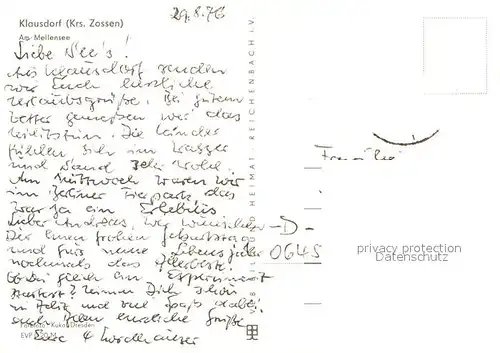 29.8.76
Klausdorf (Krs. Zossen)
Am Mellensee
Liebe 's!
Aus Klausdorf senden
wir Euch herzliche
Urlaubsgrüße. Bei gutem
Wetter genießen wir das
Die Kinder
fühlen sich im Wasser
und Sand sehr wohl.
Am Mittwoch waren wir
im Berliner Tierpark, das
war ja ein Erlebnis
Lieber Andreas, wir wünschen
Dir einen frohen Geburtstag
und fürs neue Lebensjahr
nochmals das Allerbeste.
Ob Du gleich ein Experiment
startest? Nimm Dich schön
in Acht und viel Spaß dabei.
Euch allen herzliche Grüße
Eure 4
Familie
-D-
0645
privacy protection
Datenschutz
VEB BILD UND HEIMAT REICHENBACH I. V.
Farbfoto: Kukat, Dresden
EVP 0,20 M